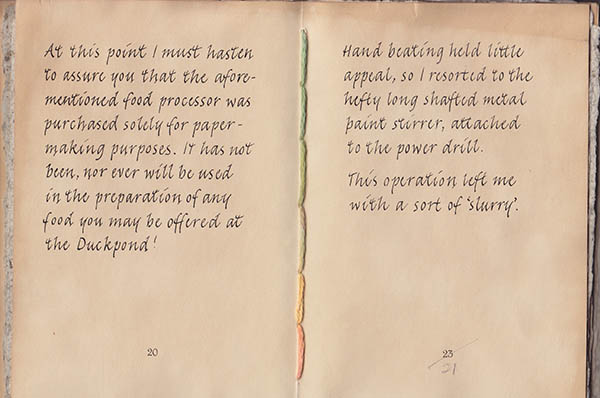 At this point I must hasten
to assure you that the afore-
mentioned food processor was
purchased solely for paper-
making purposes. It has not
been, nor ever will be used
in the preparation of any
food you may be offered at
the Duckpond!
20
Hand beating held little
appeal, so I resorted to the
hefty long shafted metal
paint stirrer, attached
to the power drill.
This operation left me
with a sort of 'slurry'.
23
21